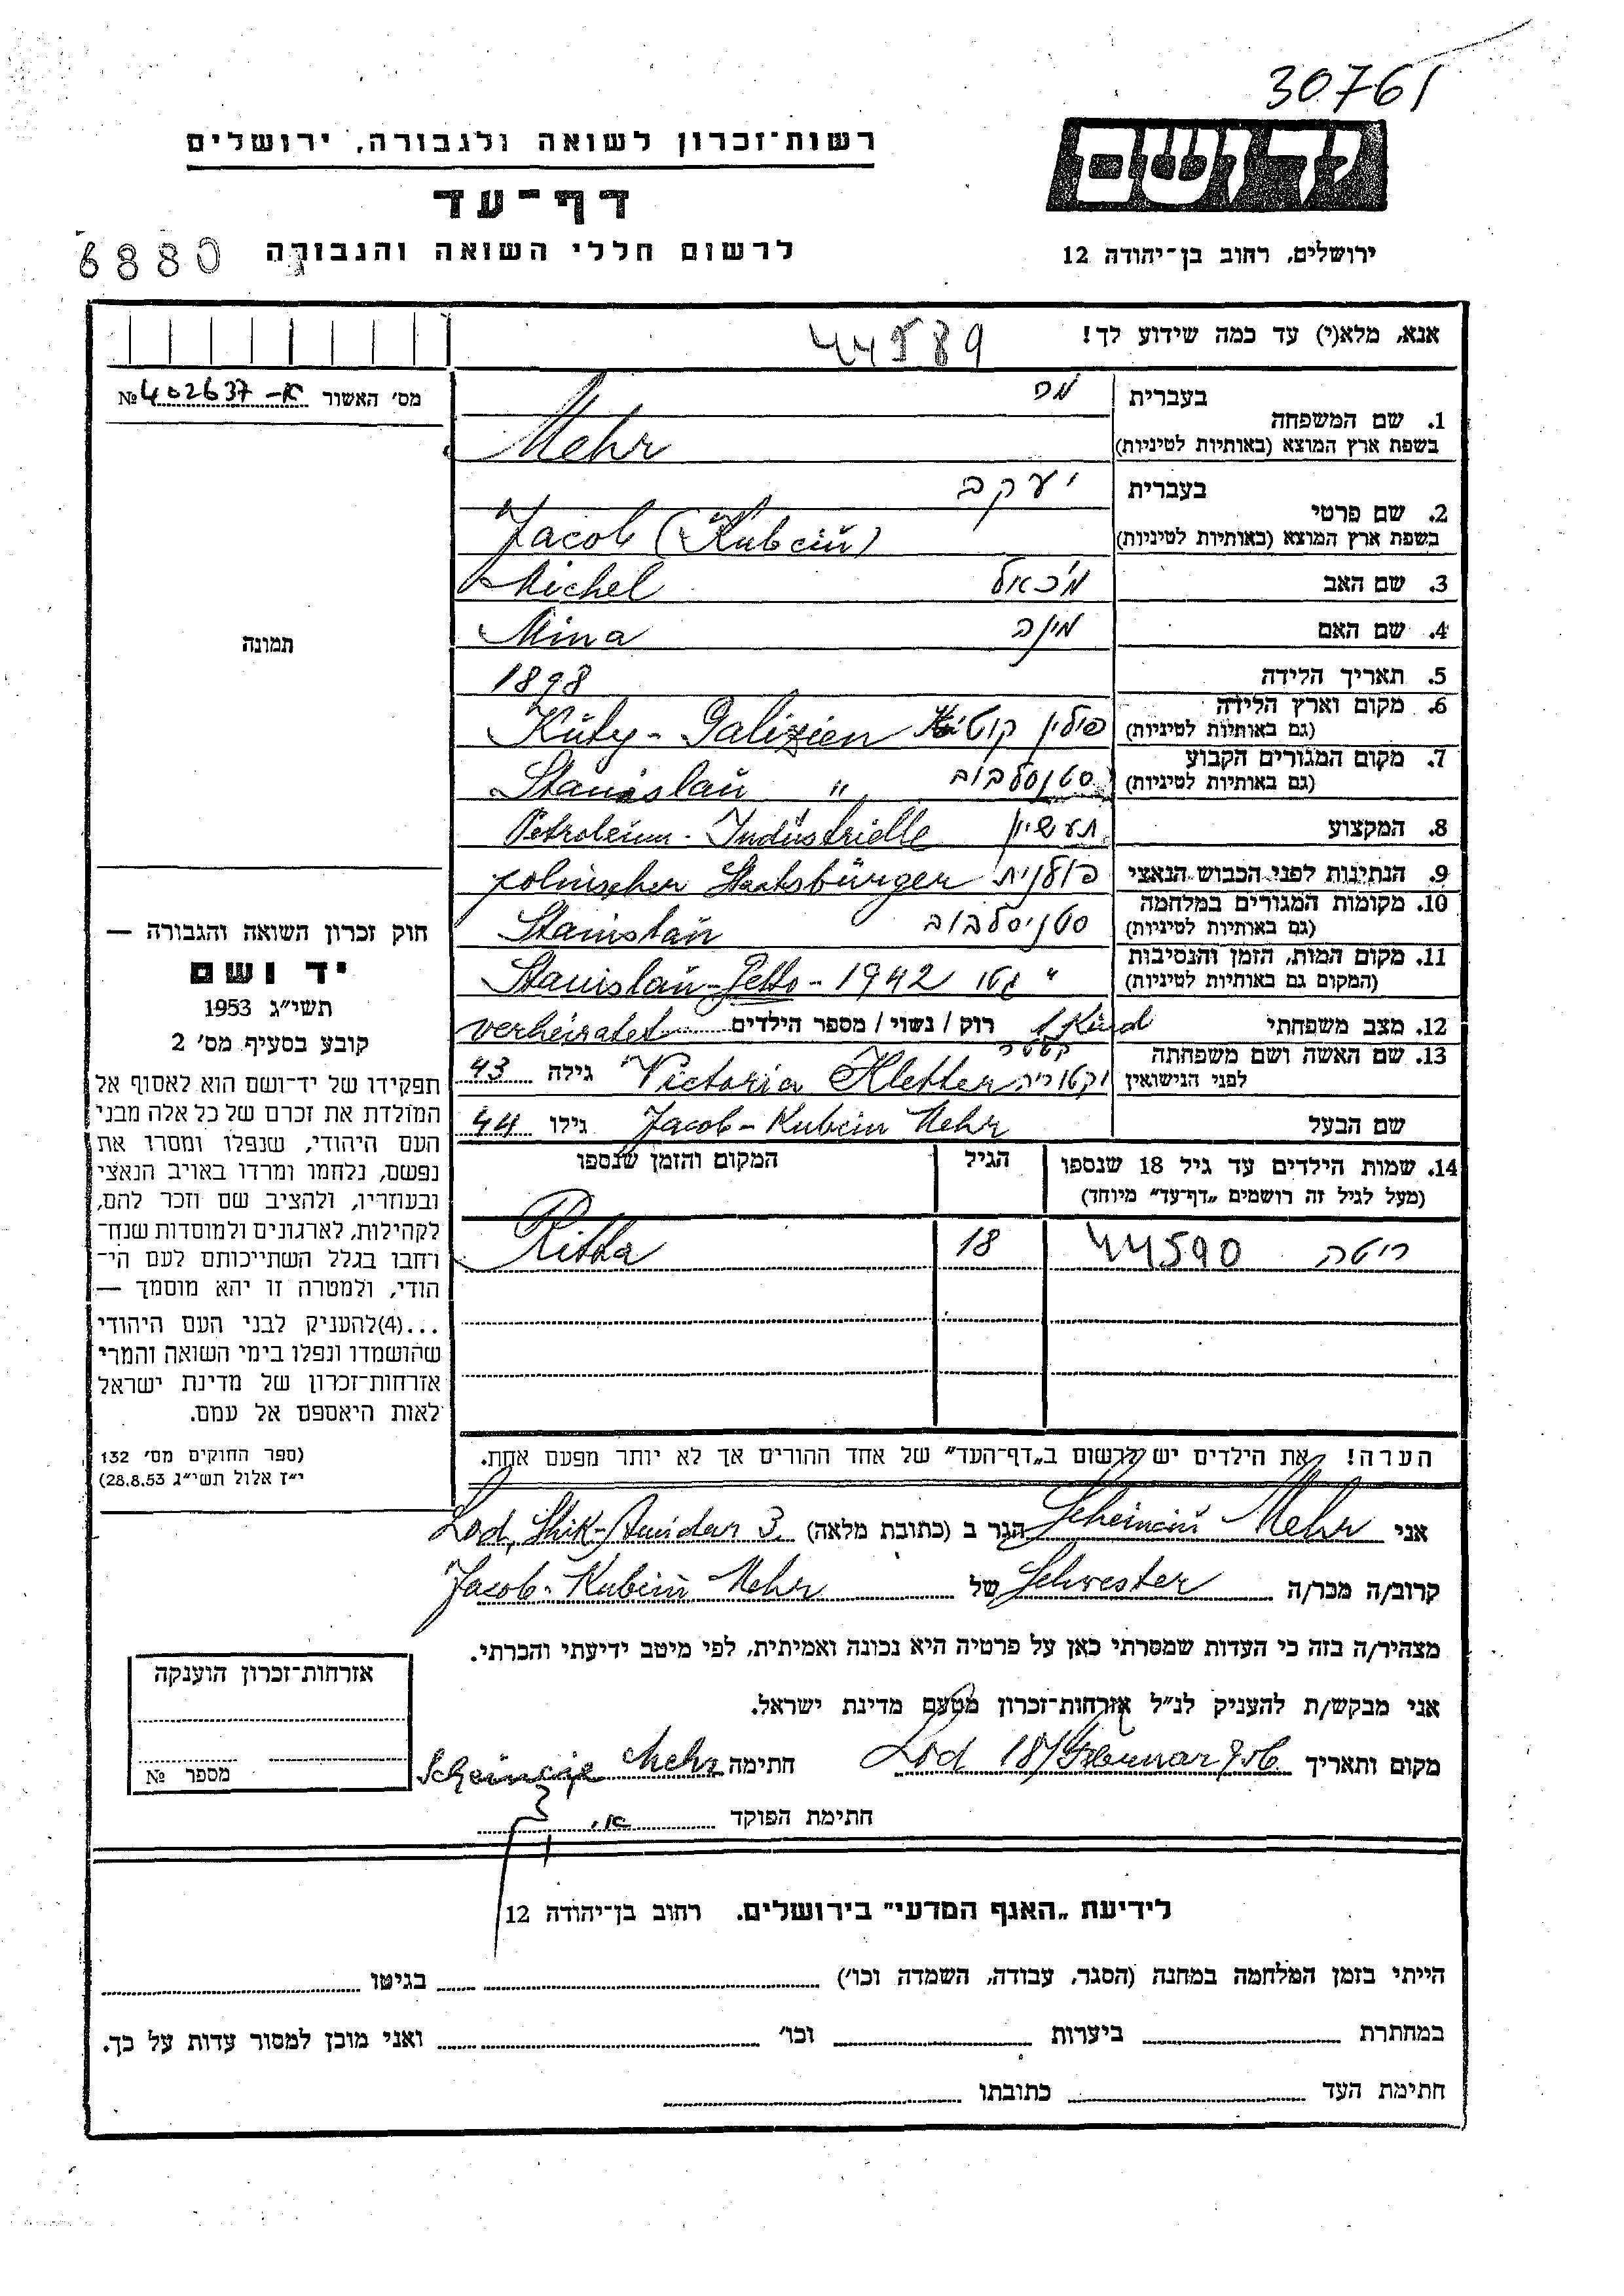 30761
רשות־זכרון לשואה ולגבורה, ירושלים
יד ושם
דף־עד
לרשום חללי השואה והגבורה
ירושלים, רחוב בן־יהודה 12
6880
אנא, מלא(י) עד כמה שידוע לך!
44589
מס׳ האשור № 402637 -א
1. שם המשפחה
בעברית
בשפת ארץ המוצא (באותיות לטיניות)
Mehr
2. שם פרטי
בעברית יעקב
בשפת ארץ המוצא (באותיות לטיניות) Jacob (Kubciń)
3. שם האב מיכאל Michel
4. שם האם מינה Mina
5. תאריך הלידה 1898
6. מקום וארץ הלידה
(גם באותיות לטיניות) פולין קוטי Kuty - Galizien
7. מקום המגורים הקבוע
(גם באותיות לטיניות) סטניסלבוב Stanislaŭ "
8. המקצוע תעשיין Petroleum - Industrielle
9. הנתינות לפני הכבוש הנאצי פולנית polnischer Staatsbürger
10. מקומות המגורים במלחמה
(גם באותיות לטיניות) סטניסלבוב Stanislaŭ
11. מקום המות, הזמן והנסיבות
(המקום גם באותיות לטיניות) " גטו Stanislaŭ - Getto - 1942
12. מצב משפחתי רוק / נשוי / מספר הילדים 1 Kind verheiratet
13. שם האשה ושם משפחתה
לפני הנישואין ויקטוריה Victoria Kletter גילה 43
שם הבעל Jacob - Kubein Mehr גילו 44
14. שמות הילדים עד גיל 18 שנספו
(מעל לגיל זה רושמים „דף־עד" מיוחד)
הגיל
המקום והזמן שנספו
ריטה 44590 18 Ritta
הערה! את הילדים יש לרשום ב„דף־העד" של אחד ההורים אך לא יותר מפעם אחת.
תמונה
חוק זכרון השואה והגבורה —
יד ושם
תשי״ג 1953
קובע בסעיף מס׳ 2
תפקידו של יד־ושם הוא לאסוף אל
המולדת את זכרם של כל אלה מבני
העם היהודי, שנפלו ומסרו את
נפשם, נלחמו ומרדו באויב הנאצי
ובעוזריו, ולהציב שם וזכר להם,
לקהילות, לארגונים ולמוסדות שנח־
רחבו בגלל השתייכותם לעם הי־
הודי, ולמטרה זו יהא מוסמך —
...(4)להעניק לבני העם היהודי
שהושמדו ונפלו בימי השואה והמרי
אזרחות־זכרון של מדינת ישראל
לאות היאספם אל עמם.
(ספר החוקים מס׳ 132
י״ז אלול תשי״ג 28.8.53)
אני Mehr הגר ב (כתובת מלאה) Lod, Shik-Amidar 3
קרוב/ה מכר/ה Schwester של Jacob - Kubein Mehr
מצהיר/ה בזה כי העדות שמסרתי כאן על פרטיה היא נכונה ואמיתית, לפי מיטב ידיעתי והכרתי.
אני מבקש/ת להעניק לנ״ל אזרחות־זכרון מטעם מדינת ישראל.
מקום ותאריך Lod 18/Februar 956 חתימה Mehr
חתימת הפוקד
אזרחות־זכרון הוענקה
מספר №
לידיעת „האגף המדעי" בירושלים. רחוב בן־יהודה 12
הייתי בזמן המלחמה במחנה (הסגר, עבודה, השמדה וכו׳) בגיטו
במחתרת ביערות וכו׳ ואני מוכן למסור עדות על כך.
חתימת העד כתובתו